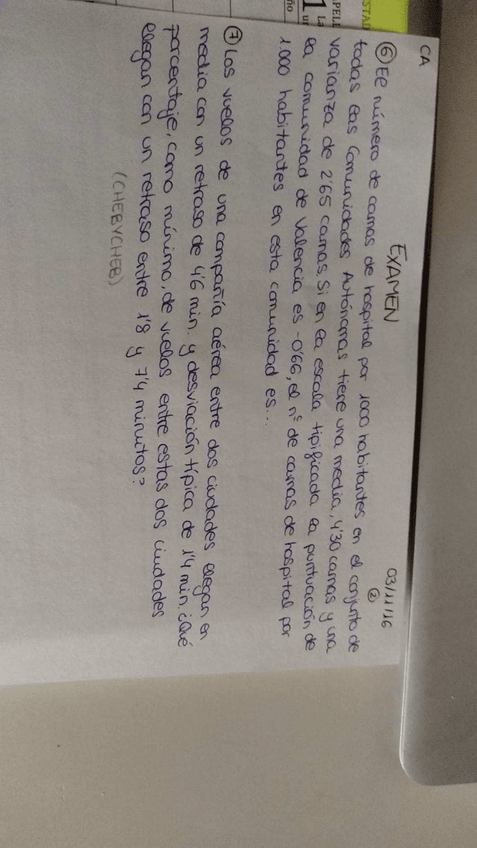 CA
EXAMEN
03/11/16
②
⑥ El número de camas de hospital por 1000 habitantes en el conjunto de
todas las Comunidades Autónomas tiene una media, 4'30 camas y una
varianza de 2'65 camas. Si en la escala tipificada la puntuación de
la comunidad de Valencia es -0'66, el nº de camas de hospital por
1.000 habitantes en esta comunidad es...
⑦ Los vuelos de una compañía aérea entre dos ciudades llegan en
media con un retraso de 4'6 min. y desviación típica de 1'4 min. ¿Qué
porcentaje, como mínimo, de vuelos entre estas dos ciudades
llegan con un retraso entre 1'8 y 7'4 minutos?
(CHEBYCHEB)